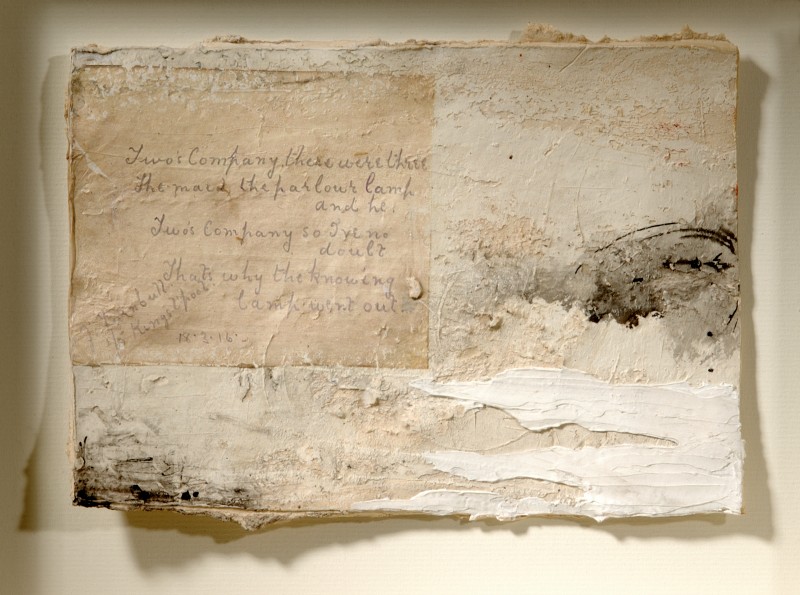 Two's Company, there were three
The maid, the parlour lamp
and he.
Two's Company so I've no
doubt
That's why the knowing
lamp went out.
Turnbull
18.3.16.